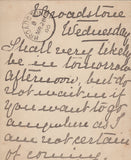 Broadstone
Wednesday
I shall very likely
be in tomorrow
afternoon, but do
not wait in if
you want to go
anywhere as I
am not certain
of coming.